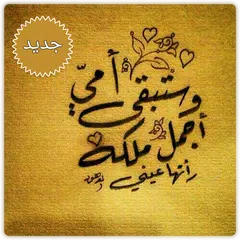 جديد
وستبقى أمي
أجمل ملكة
رأتها عيني